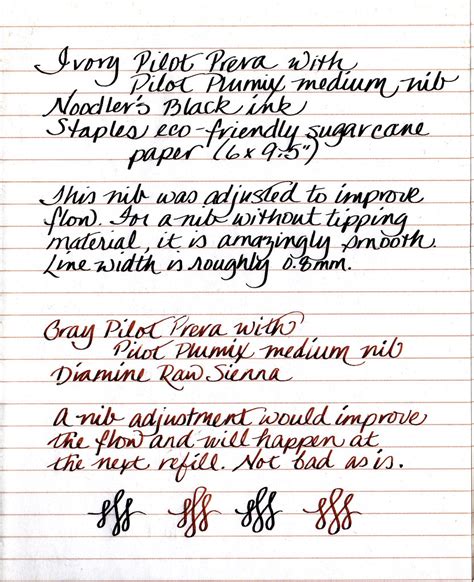 Ivory Pilot Prera with
Pilot Plumix medium nib
Noodler's Black ink
Staples eco-friendly sugarcane
paper (6x9.5")
This nib was adjusted to improve
flow. For a nib without tipping
material, it is amazingly smooth.
Line width is roughly 0.8mm.
Gray Pilot Prera with
Pilot Plumix medium nib
Diamine Raw Sienna
A nib adjustment would improve
the flow and will happen at
the next refill. Not bad as is.